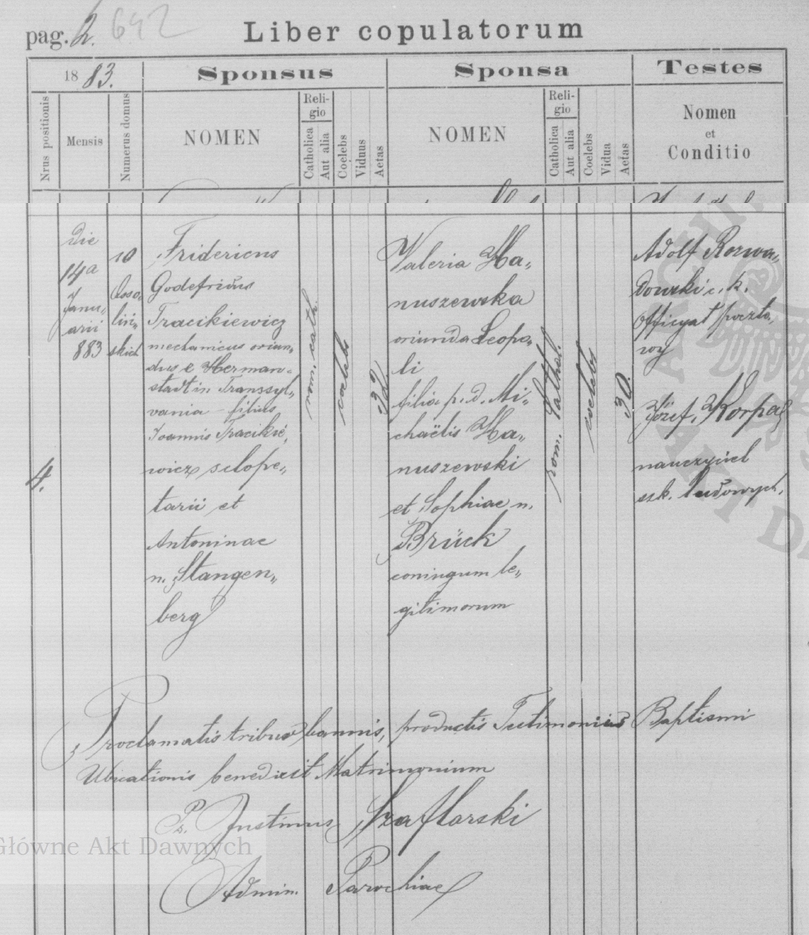 pag. 2. 642
Liber copulatorum
1883.
Sponsus
Sponsa
Testes
Nrus positionis
Mensis
Numerus domus
NOMEN
Religio
Catholica
Aut alia
Coelebs
Viduus
Aetas
NOMEN
Religio
Catholica
Aut alia
Coelebs
Vidua
Aetas
Nomen
et
Conditio
4.
Die
14a
Janu-
arii
883
10
Osso,
liń-
skich
Fridericus
Godefridus
Tracikiewicz
mechanicus oriun,
dus e Herman-
stadt in Transsyl-
vania – filius
Joannis Tracikie,
wicz sclope,
tarii et
Antoninae
n. Stangen,
berg
rom. cath.
coelebs
32
Valeria Ha,
nuszewska
oriunda Leopo,
li
filia p. d. Mi-
chaëlis Ha,
nuszewski
et Sophiae n.
Brück
coniugum le,
gitimorum
rom. Cathol.
coelebs
30.
Adolf Rozwa,
dowski c. k.
Officyał poczto,
wy
Józef Korpak
nauczyciel
szk. ludowych.
Proclamatis tribus bannis, productis Testimoniis Baptismi
benedixit Matrimonium
Justinus Szaflarski
Admin. Parochiae
Główne Akt Dawnych